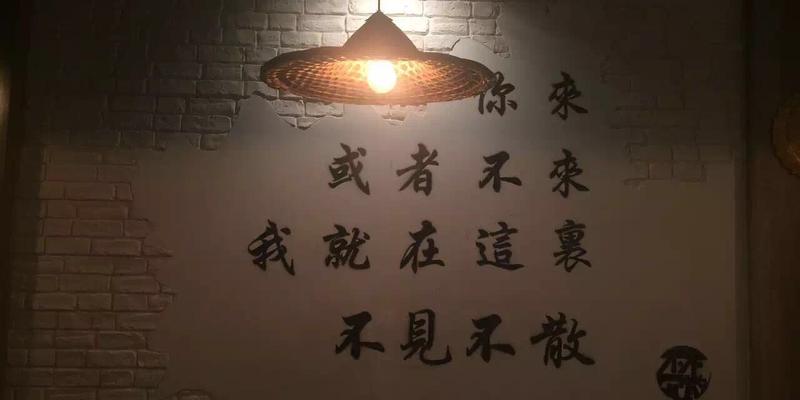 你來
或者不來
我就在這裏
不見不散